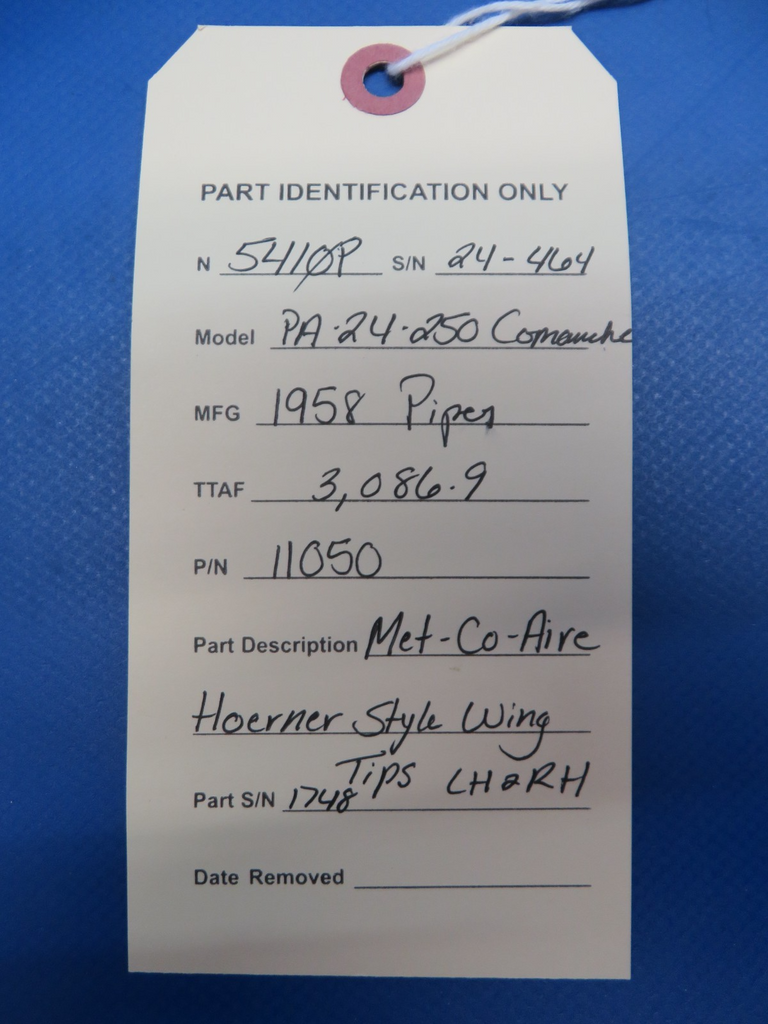 PART IDENTIFICATION ONLY
N 5410P S/N 24-464
Model PA-24-250 Comanche
MFG 1958 Piper
TTAF 3,086.9
P/N 11050
Part Description Met-Co-Aire
Hoerner Style Wing
Tips LH & RH
Part S/N 1748
Date Removed